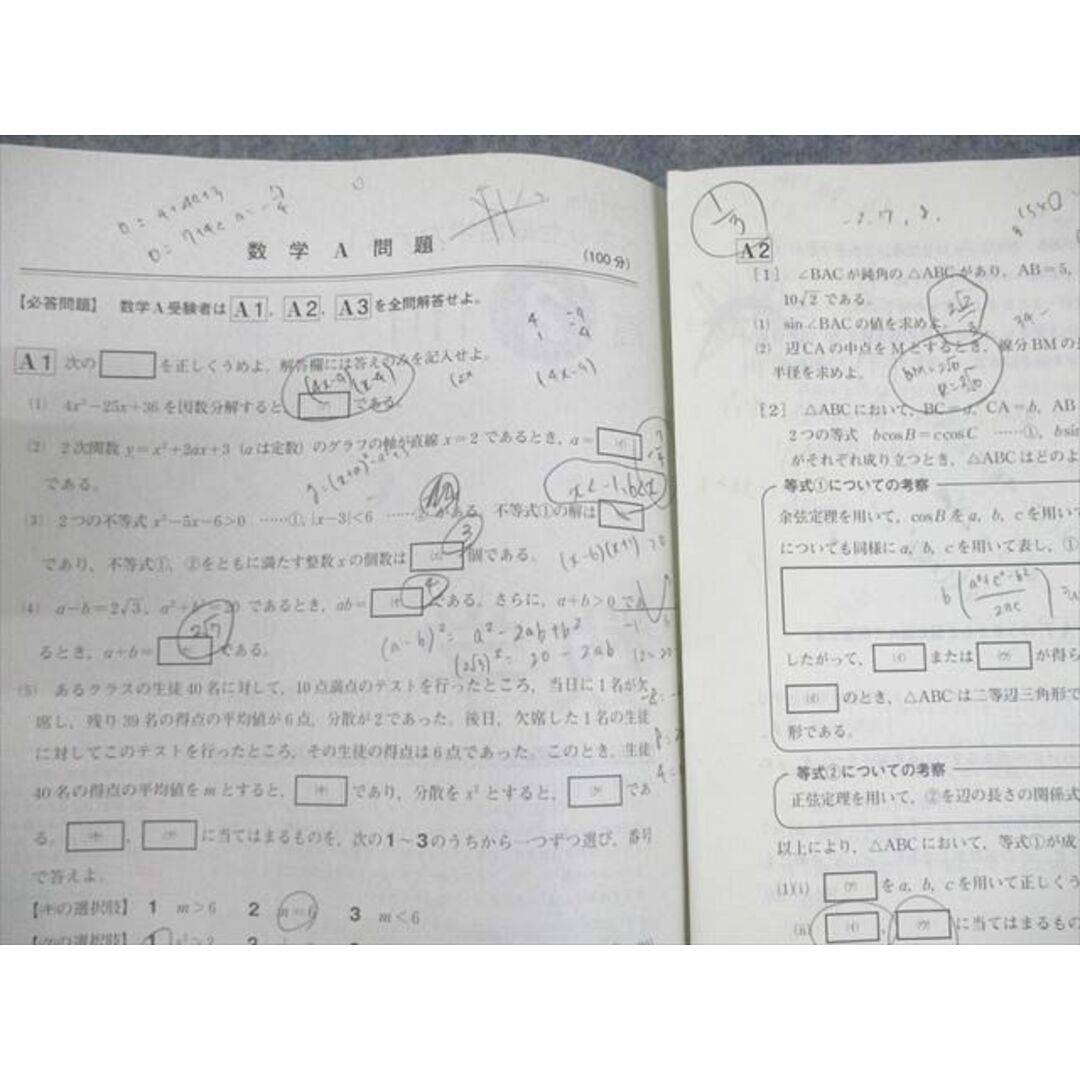 0 = 4+4a+3
0 = 7+4a a = -7/4
数学A問題
(100分)
【必答問題】 数学A受験者は A1, A2, A3 を全問解答せよ。
A1 次の□を正しくうめよ。解答欄には答えのみを記入せよ。
(4x-9)(x-4)
(4x-9)
(1) 4x²-25x+36を因数分解すると□である。
(2) 2次関数 y=x²+2ax+3 (aは定数) のグラフの軸が直線 x=2 であるとき, a=□
である。
x<-1, 6<x
(3) 2つの不等式 x²-5x-6>0 ……①, |x-3|<6 ……② がある。不等式①の解は□
であり, 不等式①, ②をともに満たす整数xの個数は□個である。
3
(x-6)(x+1)>0
(4) a-b=2√3, a²+b²=20 であるとき, ab=□である。さらに, a+b>0 であ
4
るとき, a+b=□である。
2√7
(a-b)² = a²-2ab+b²
(2√3)² = 20-2ab
(5) あるクラスの生徒40名に対して, 10点満点のテストを行ったところ, 当日に1名が欠
席し, 残り39名の得点の平均値が6点, 分散が2であった。後日, 欠席した1名の生徒
に対してこのテストを行ったところ, その生徒の得点は6点であった。このとき, 生徒
40名の得点の平均値をmとすると, □であり, 分散をx²とすると, □であ
る。□, □に当てはまるものを, 次の1〜3のうちから一つずつ選び, 番号
で答えよ。
【(キ)の選択肢】 1 m>6 2 m=6 3 m<6
1/3
A2
[1] ∠BACが鈍角の△ABCがあり, AB=5,
10√2 である。
(1) sin∠BACの値を求めよ。
(2) 辺CAの中点をMとするとき, 線分BMの長
半径を求めよ。
BM=2√6
[2] △ABCにおいて, BC=a, CA=b, AB
2つの等式 bcosB=ccosC ……①, bsin
がそれぞれ成り立つとき, △ABCはどのよ
等式①についての考察
余弦定理を用いて, cosBをa, b, cを用いて
についても同様にa, b, cを用いて表し, ①
b(a²+c²-b²/2ac)
したがって, (イ) または (ウ) が得ら
□のとき, △ABCは二等辺三角形で
形である。
等式②についての考察
正弦定理を用いて, ②を辺の長さの関係式
以上により, △ABCにおいて, 等式①が成
(1)(i) (ア) をa, b, cを用いて正しくう
(ii) (イ), (ウ) に当てはまるもの